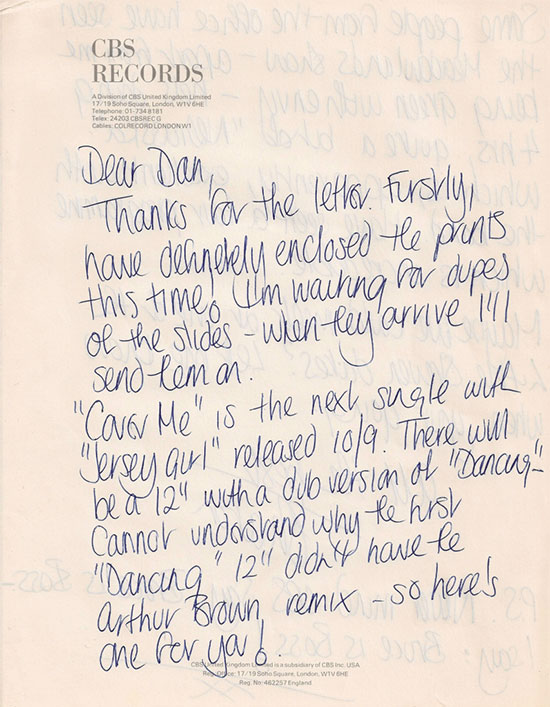 CBS
RECORDS
A Division of CBS United Kingdom Limited
17/19 Soho Square, London, W1V 6HE
Telephone: 01-734 8181
Telex: 24203 CBSREC G
Cables: COLRECORD LONDON W1
Dear Dan,
Thanks for the letter. Firstly,
have definetely enclosed the prints
this time! I'm waiting for dupes
of the slides - when they arrive I'll
send them on.
"Cover Me" is the next single with
"Jersey Girl" released 10/9. There will
be a 12" with a dub version of "Dancing" -
Cannot understand why the first
"Dancing" 12" didn't have the
Arthur Brown remix - so here's
one for you!
CBS United Kingdom Limited is a subsidiary of CBS Inc. USA
Reg. Office: 17/19 Soho Square, London, W1V 6HE
Reg. No: 482257 England